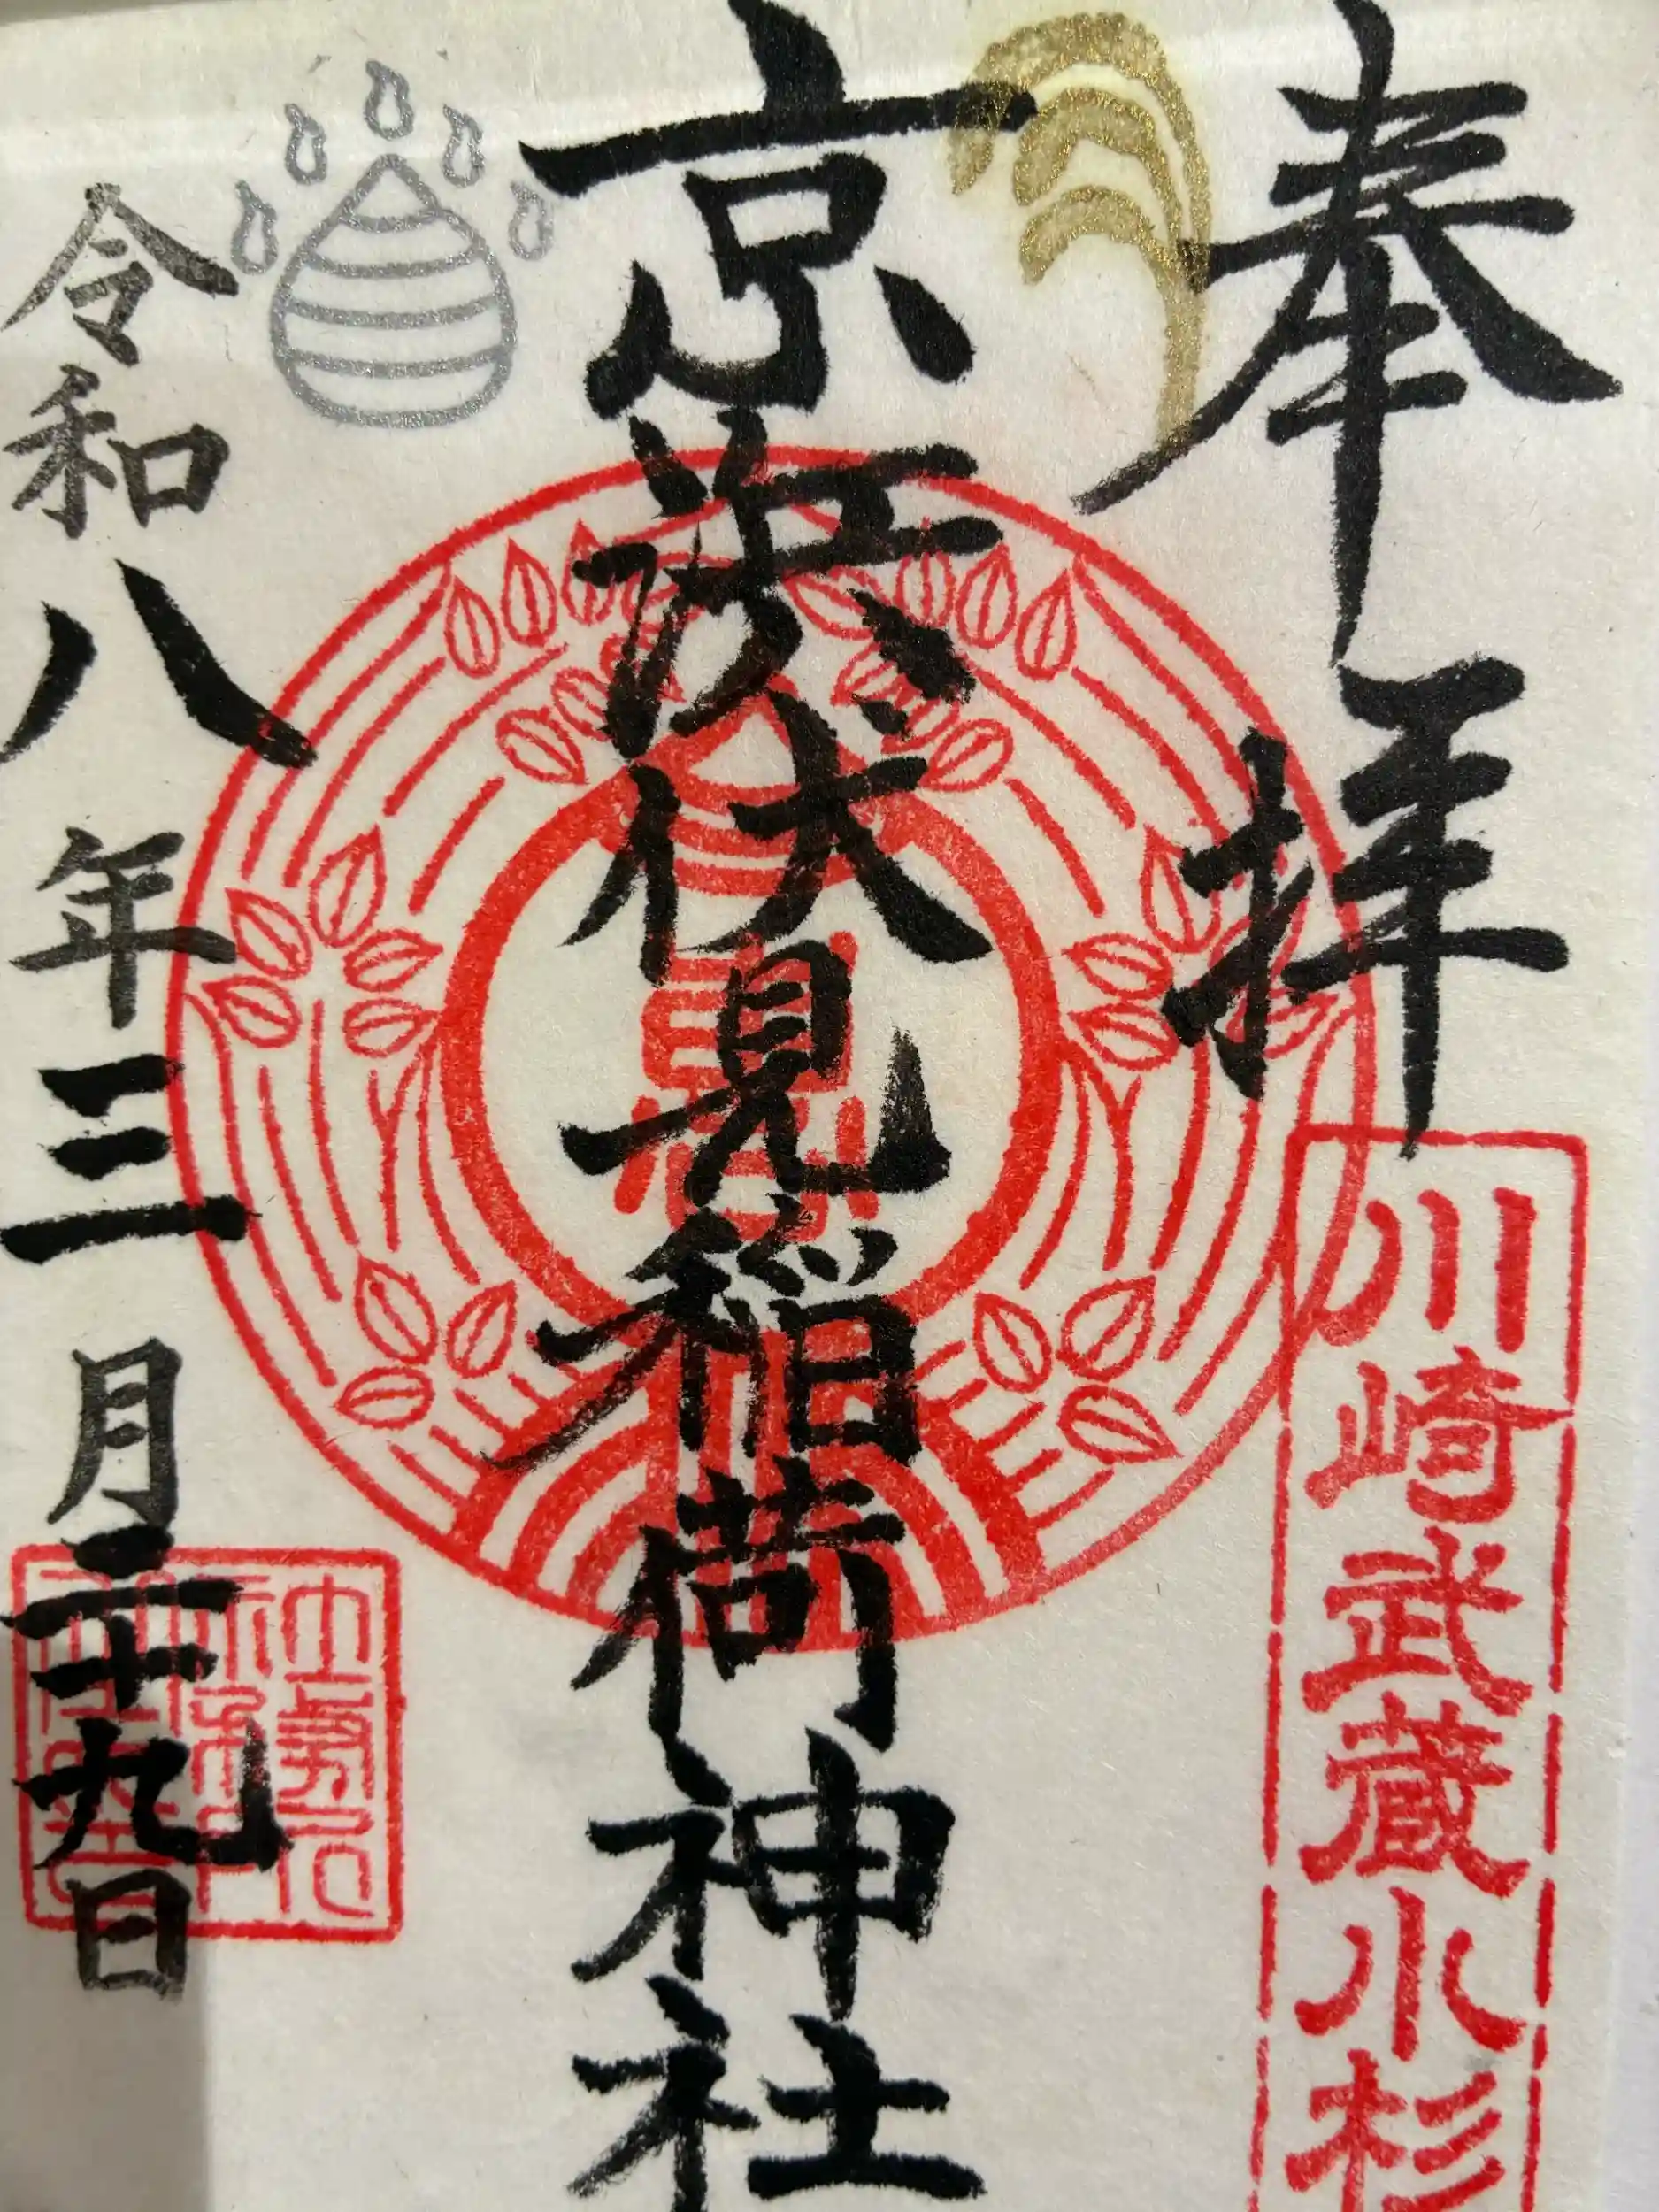 奉拝
川崎武蔵小杉
京濱伏見稲荷神社
令和八年三月二十九日